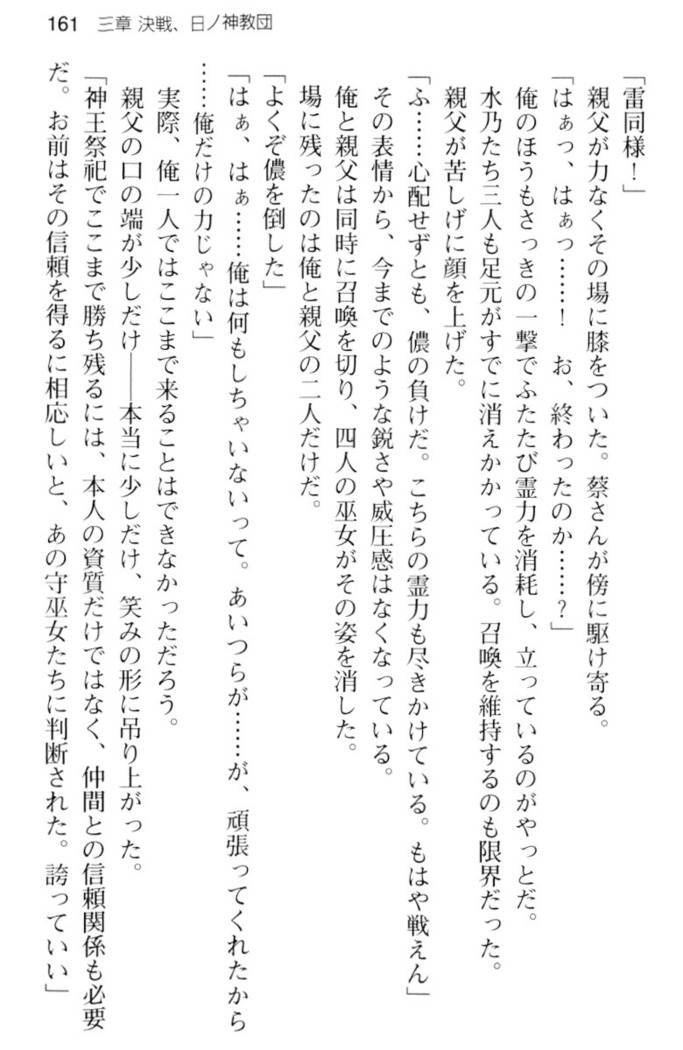 161 三章 決戦、日ノ神教団
「雷同様！」
親父が力なくその場に膝をついた。蔡さんが傍に駆け寄る。
「はぁっ、はぁっ……！　お、終わったのか……？」
俺のほうもさっきの一撃でふたたび霊力を消耗し、立っているのがやっとだ。
水乃たち三人も足元がすでに消えかかっている。召喚を維持するのも限界だった。
親父が苦しげに顔を上げた。
「ふ……心配せずとも、儂の負けだ。こちらの霊力も尽きかけている。もはや戦えん」
その表情から、今までのような鋭さや威圧感はなくなっている。
俺と親父は同時に召喚を切り、四人の巫女がその姿を消した。
場に残ったのは俺と親父の二人だけだ。
「よくぞ儂を倒した」
「はぁ、はぁ……俺は何もしちゃいないって。あいつらが……が、頑張ってくれたから
……俺だけの力じゃない」
実際、俺一人ではここまで来ることはできなかっただろう。
親父の口の端が少しだけ――本当に少しだけ、笑みの形に吊り上がった。
「神王祭祀でここまで勝ち残るには、本人の資質だけではなく、仲間との信頼関係も必要
だ。お前はその信頼を得るに相応しいと、あの守巫女たちに判断された。誇っていい」